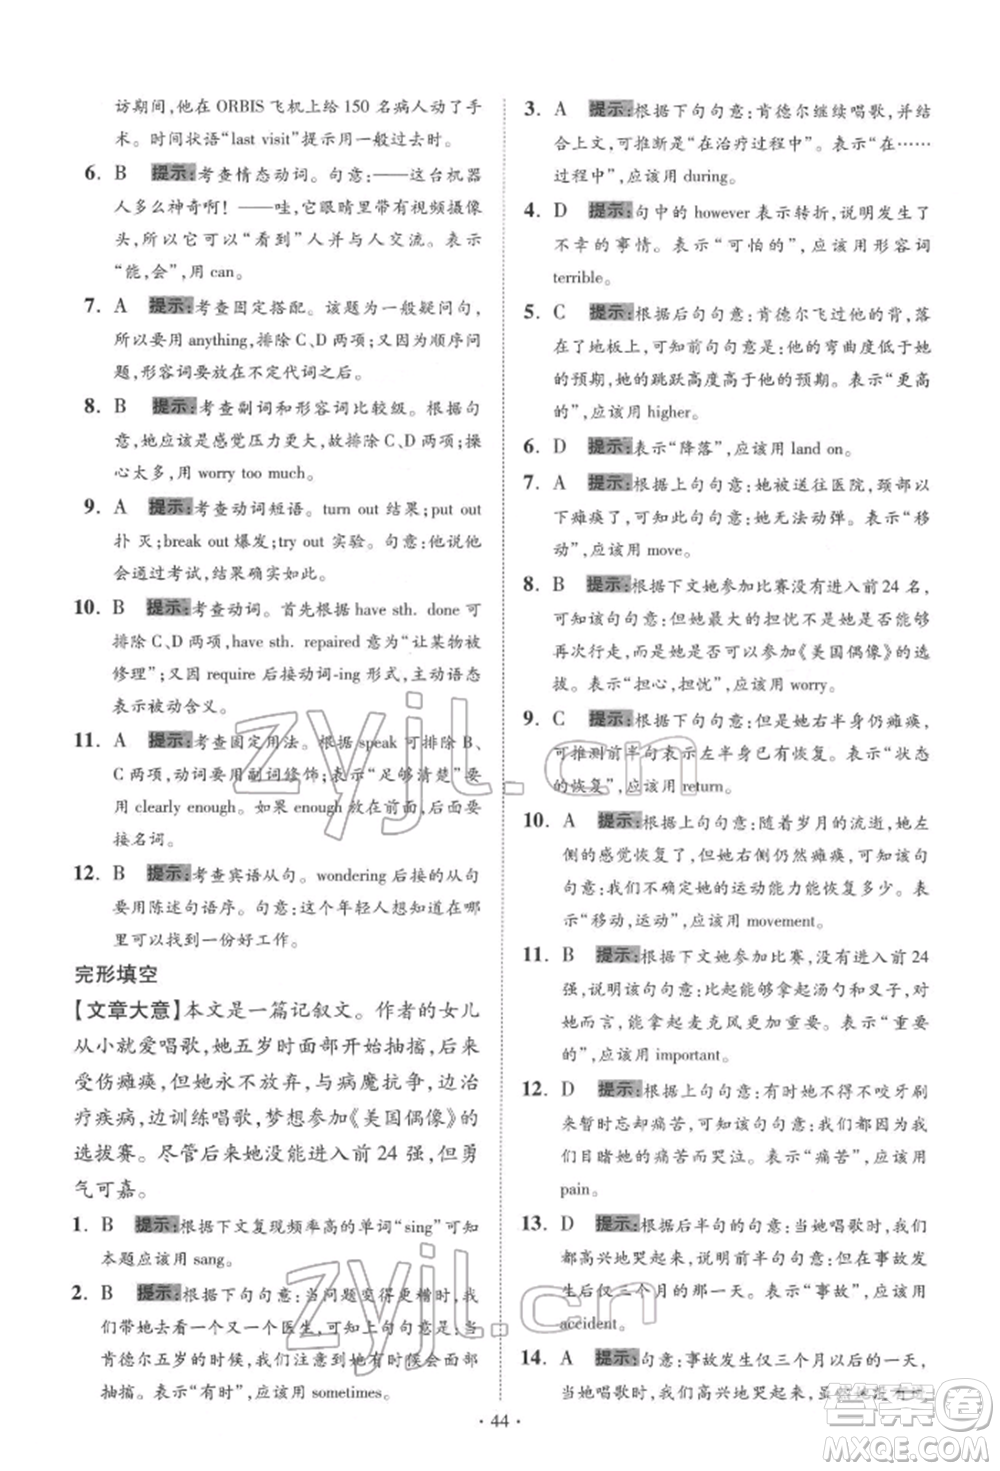 访期间,他在 ORBIS 飞机上给 150 名病人动了手
术。时间状语“last visit”提示用一般过去时。
6. B 提示:考查情态动词。句意:——这台机器
人多么神奇啊!——哇,它眼睛里带有视频摄像
头,它可以“看到”人并与人交流。表示
“能,会”,用 can。
7. A 提示:考查固定搭配。该题为一般疑问句,
要用 anything,排除 C、D 两项;又因为顺序问
题,形容词要放在不定代词之后。
8. B 提示:考查副词和形容词比较级。根据句
意,她应该是感觉压力更大,故排除 C、D 两项;操
心太多,用 worry too much。
9. A 提示:考查动词短语。turn out 结果;put out
扑灭;break out 爆发;try out 实验。句意:他说他
会通过考试,结果确实如此。
10. B 提示:考查动词。首先根据 have sth. done 可
排除 C、D 两项,have sth. repaired 意为“让某物被
修理”;又因 require 后接动词-ing 形式,主动语态
表示被动含义。
11. A 提示:考查固定用法。根据 speak 可排除 B、
C 两项,动词要用副词修饰;表示“足够清楚”要
用 clearly enough。如果 enough 放在前面,后面要
接名词。
12. B 提示:考查宾语从句。wondering 后接的从句
要用陈述句语序。句意:这个年轻人想知道在哪
里可以找到一份好工作。
完形填空
【文章大意】本文是一篇记叙文。作者的女儿
从小就爱唱歌,她五岁时面部开始抽搐,后来
受伤瘫痪,但她永不放弃,与病魔抗争,边治
疗疾病,边训练唱歌,梦想参加《美国偶像》的
选拔赛。尽管后来她没能进入前 24 强,但勇
气可嘉。
1. B 提示:根据下文复现频率高的单词“sing”可知
本题应该用 sang。
2. B 提示:根据下句句意:当问题变得更糟时,我
们带她去看了一个又一个医生,可知此句句意:当
肯德尔五岁的时候,我们注意到她有时候会面部
抽搐。表示“有时”,应该用 sometimes。
3. A 提示:根据下句句意:肯德尔继续唱歌,并结
合上文,可知此处表示“在治疗过程中”,表示“在……
过程中”,应该用 during。
4. D 提示:句中的 however 表示转折,说明发生了
不幸的事情。表示“可怕的”,应该用形容词
terrible。
5. C 提示:根据后句句意:肯德尔飞过他的背,落
在了地板上,可知前句句意是:他的弯曲度低于她
的预期,她的跳跃高度高于他的预期。表示“更高
的”,应该用 higher。
6. D 提示:表示“降落”,应该用 land on。
7. A 提示:根据上句句意:她被送往医院,颈部以
下瘫痪了,可知此句句意:她无法动弹。表示“移
动”,应该用 move。
8. B 提示:根据下文她参加比赛没有进入前 24 名,
可知此处句意:但是,她最大的担忧不是她能否
再次行走,而是她是否可以参加《美国偶像》的选
拔赛。表示“担心,担忧”,应该用 worry。
9. C 提示:根据下句句意:但是她右半身仍瘫痪,
可推测前半句表示左半身已有恢复。表示“状态
的恢复”,应该用 return。
10. A 提示:根据上句句意:随着岁月的流逝,她左
侧的感觉恢复了,但她右侧仍然瘫痪,可知该句
句意:我们不确定她的运动能力能恢复多少。表
示“移动,运动”,应该用 movement。
11. B 提示:根据下文她参加比赛,没有进入前 24
强,意思是她去参加比赛了,可知该句句意:但是
对她而言,能拿得起麦克风比拿起汤勺和叉子
更加重要。表示“重要
的”,应该用 important。
12. D 提示:根据上句句意:有时她不得不咬牙刷
来暂时忘却痛苦,可知该句句意:我经常因为
目睹她的痛苦而哭泣。表示“痛苦”,应该用
pain。
13. D 提示:根据后半句的句意:当她唱歌时,我们
都高兴地哭起来,说明前半句句意:在事故发生
后仅三个月的一天。表示“事故”,应该用
accident。
14. A 提示:句意:事故发生仅三个月以后的一天,
当她唱歌时,我们高兴地哭了起来,
· 44 ·
zyjl.cn
zyjl.cn
答案圈
MXQE.COM